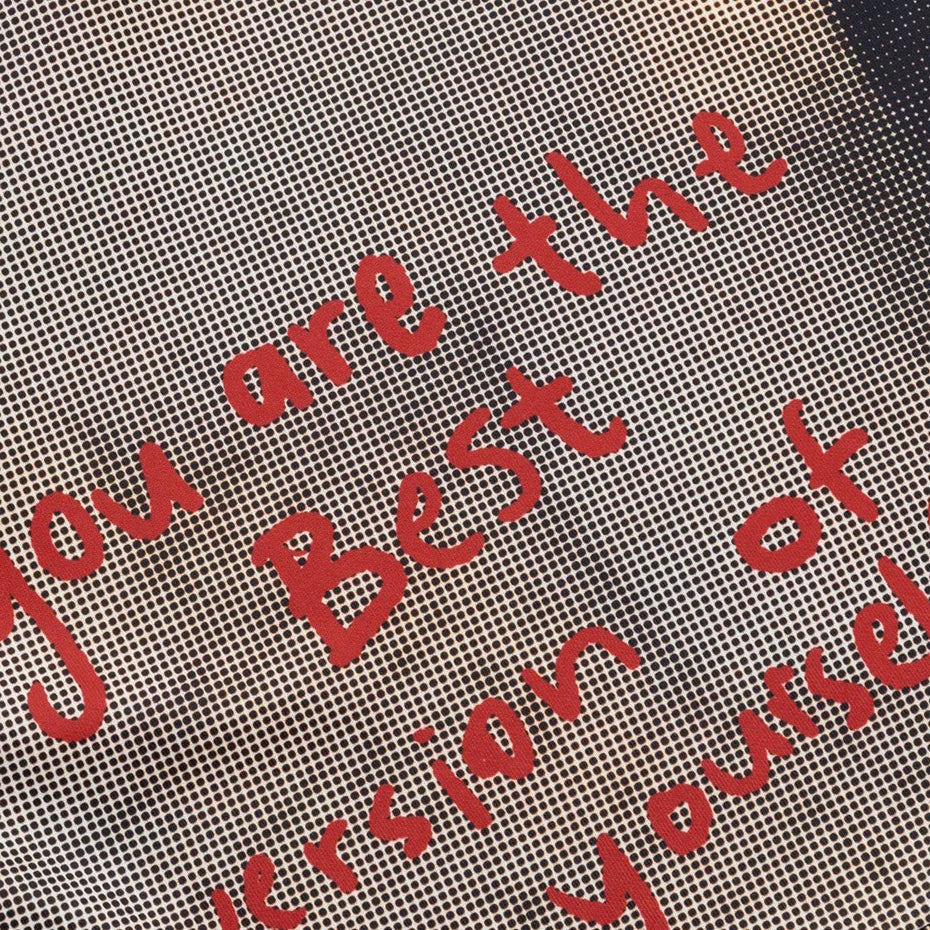 you are the
Best
version of
yoursel